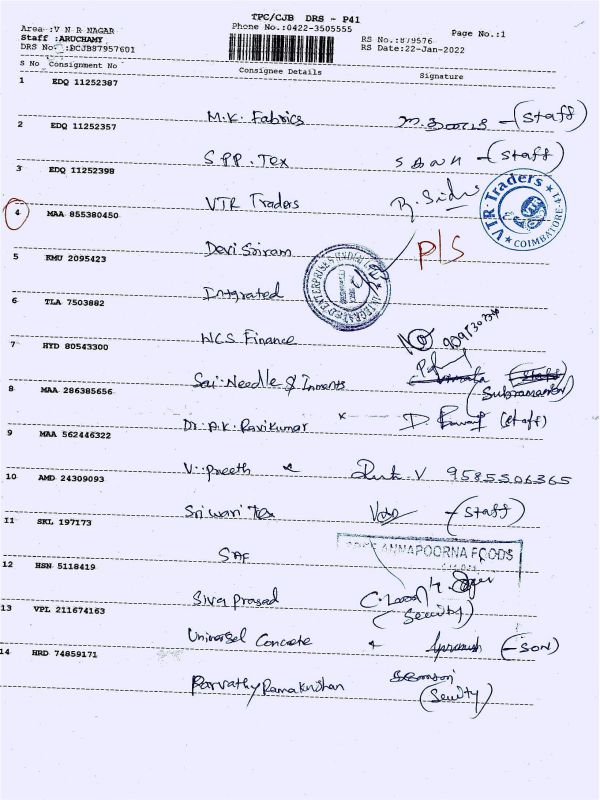 TPC/CJB DRS - P41
Area :V N R NAGAR
Phone No.:0422-3505555
Page No.:1
Staff :ARUCHAMY
RS No.:879576
DRS No :DCJB87957601
RS Date:22-Jan-2022
S No Consignment No Consignee Details Signature
1 EDQ 11252387
M.K. Fabrics (Staff)
2 EDQ 11252357
S.P.P. Tex (Staff)
3 EDQ 11252398
VTR Traders R. Sidhu
VTR Traders COIMBATORE
4 MAA 855380450
Devi Sriram P/S
5 KMU 2095423
Intgrated
INTEGRATED ENTERPRISES
6 TLA 7503882
NCS Finance
7 HYD 80543300
Sai Needle & Inments (Subramanian)
8 MAA 286385656
Dr. P.K. Ravikumar x D. (Staff)
9 MAA 562446322
V. Preeth V 9585506365
10 AMD 24309093
Sriwari Tex (Staff)
11 SKL 197173
SAF
ANNAPOORNA FOODS
12 HSN 5118419
Siva Prasad (Security)
13 VPL 211674163
Universel Concrete (SON)
14 HRD 74859171
Parvathy Ramakrishan (Security)